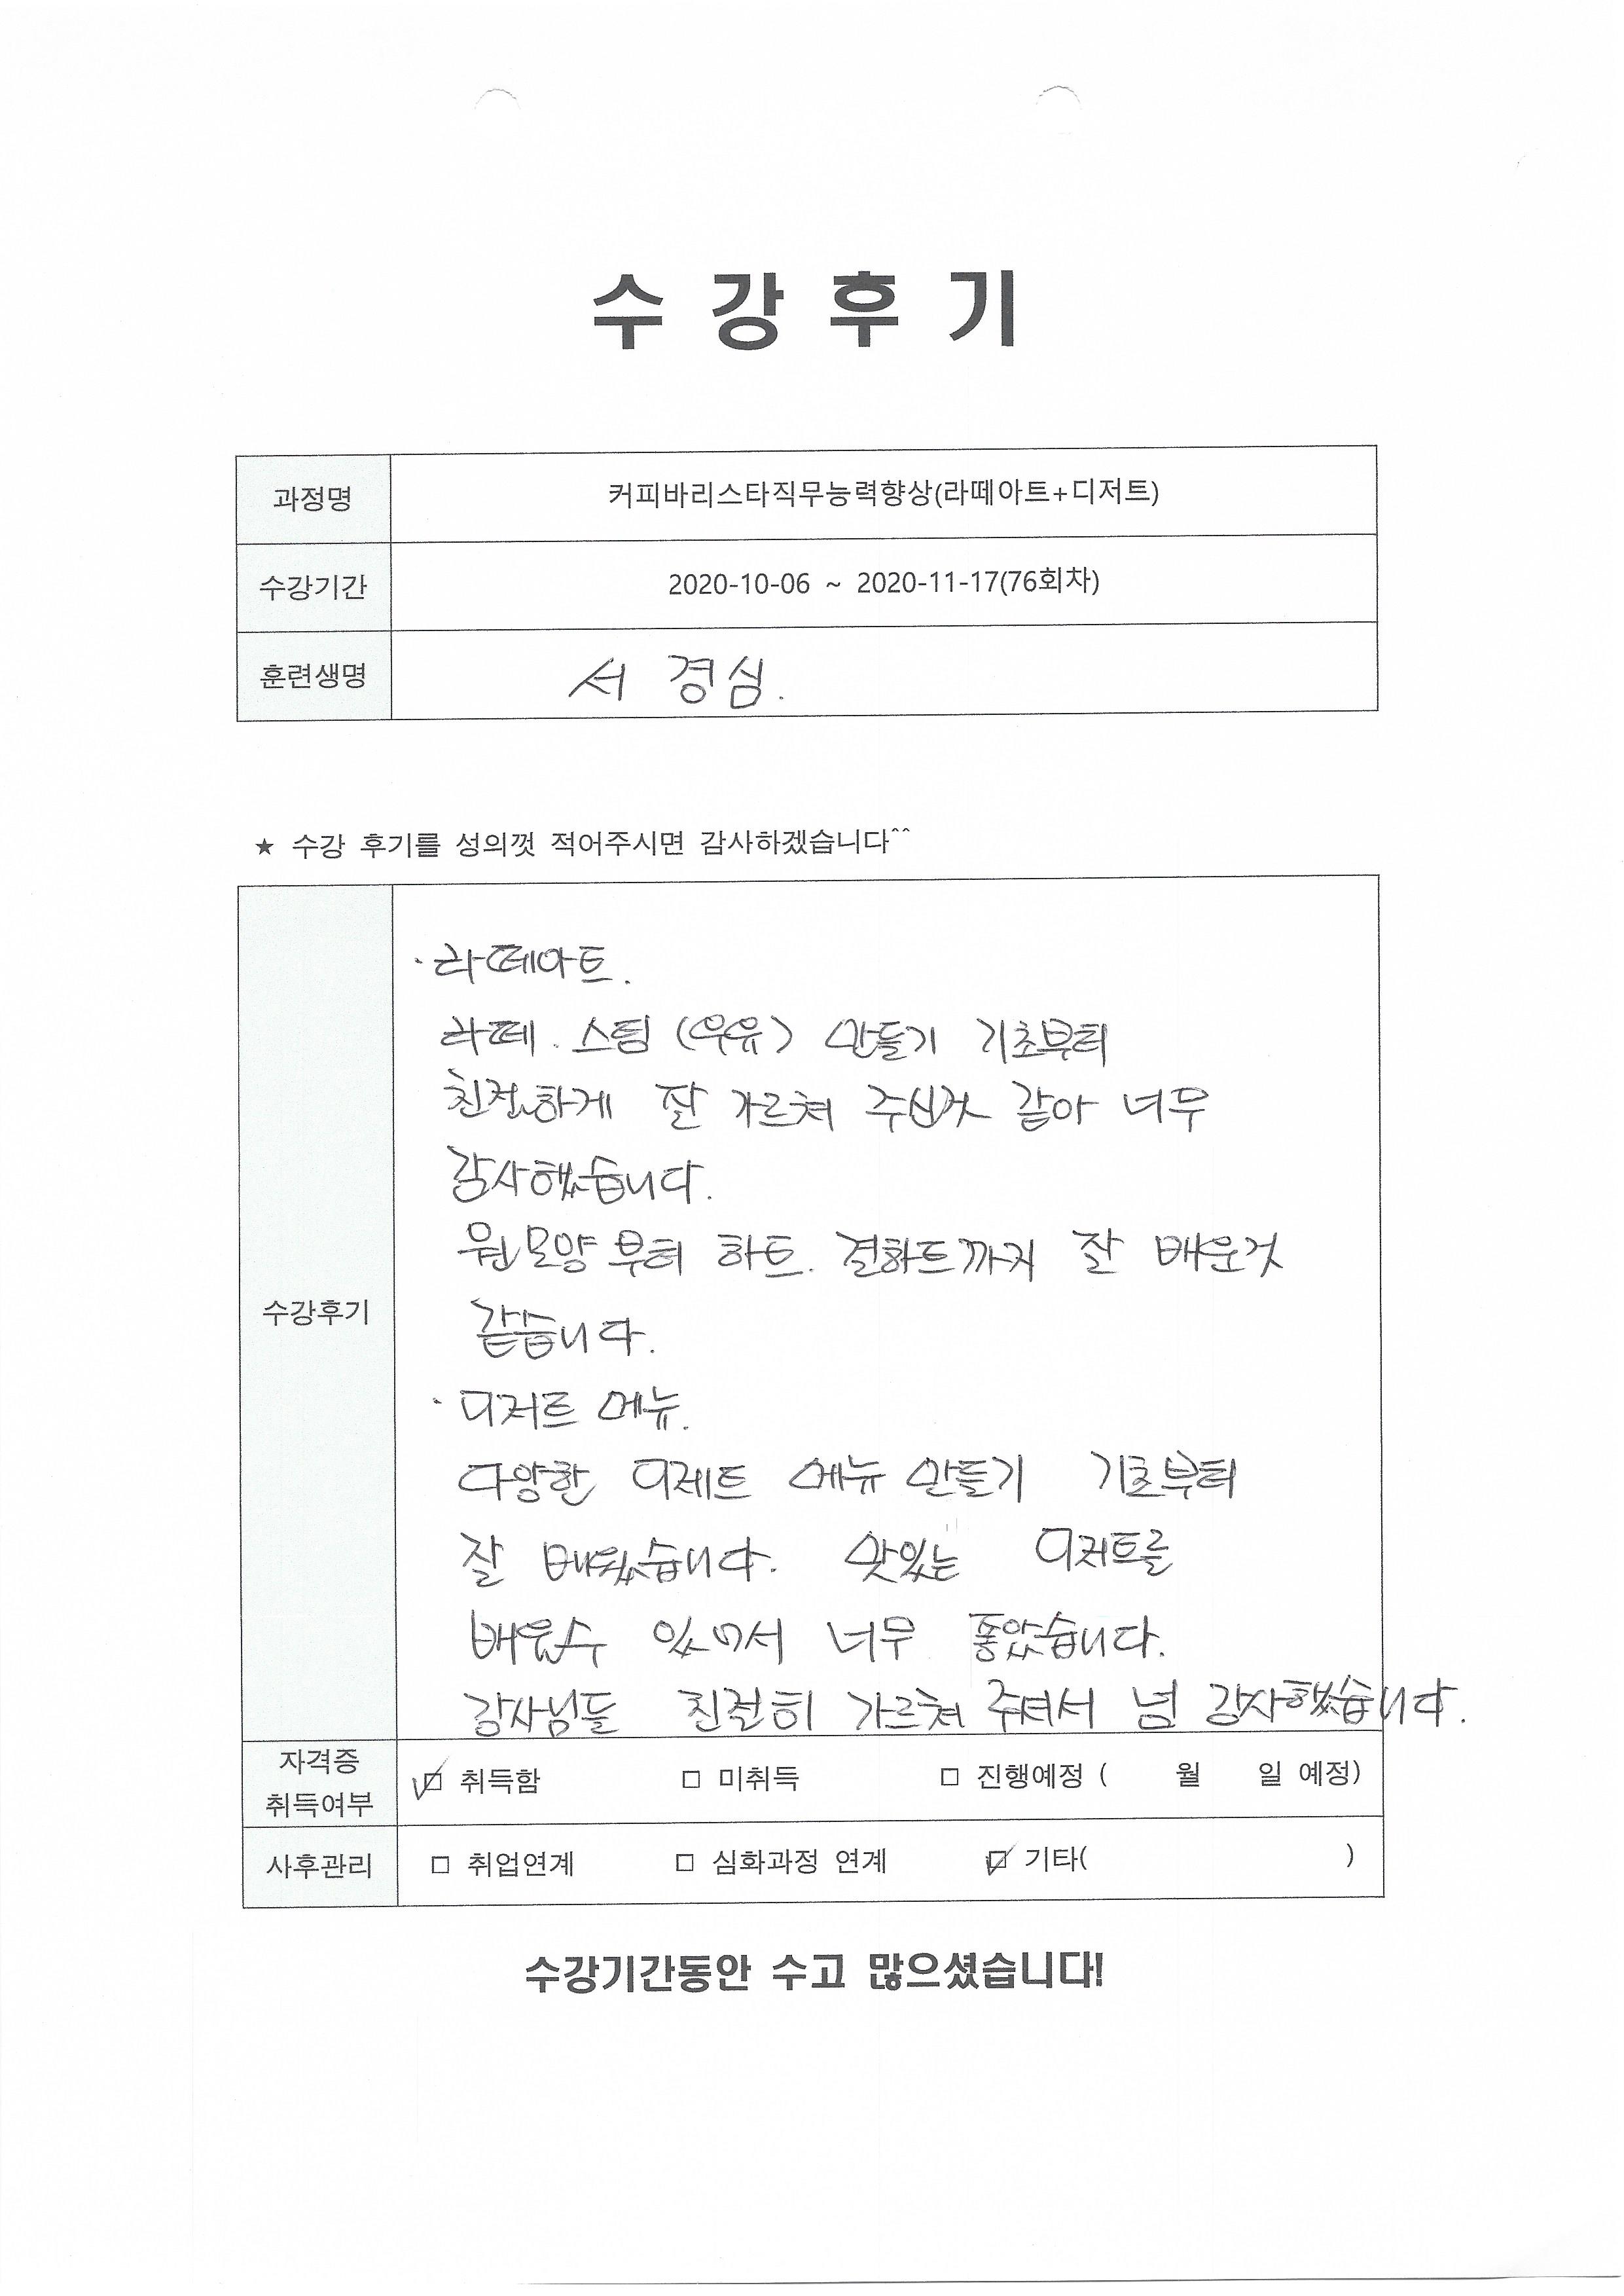 수 강 후 기
과정명 커피바리스타직무능력향상(라떼아트+디저트)
수강기간 2020-10-06 ~ 2020-11-17(76회차)
훈련생명 서 경심.
★ 수강 후기를 성의껏 적어주시면 감사하겠습니다^^
수강후기
· 라떼아트.
라떼. 스팀 (우유) 만들기 기초부터
친절하게 잘 가르쳐 주신것 같아 너무
감사했습니다.
원모양부터 하트. 결하트까지 잘 배운것
같습니다.
· 디저트 메뉴.
다양한 디제트 메뉴 만들기 기초부터
잘 배웠습니다. 맛있는 디저트를
배울수 있어서 너무 좋았습니다.
강사님들 친절히 가르쳐 주셔서 넘 감사했습니다.
자격증 취득여부 ☑ 취득함 □ 미취득 □ 진행예정 ( 월 일 예정)
사후관리 □ 취업연계 □ 심화과정 연계 ☑ 기타( )
수강기간동안 수고 많으셨습니다!